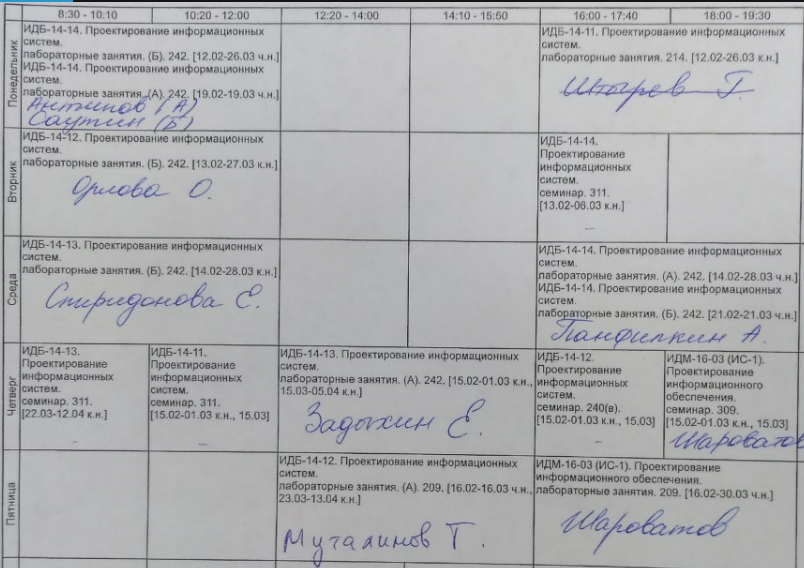 8:30 - 10:10
10:20 - 12:00
12:20 - 14:00
14:10 - 15:50
16:00 - 17:40
18:00 - 19:30
Понедельник
ИДБ-14-14. Проектирование информационных
систем.
лабораторные занятия. (Б). 242. [12.02-26.03 ч.н.]
ИДБ-14-14. Проектирование информационных
систем.
лабораторные занятия. (А). 242. [19.02-19.03 ч.н.]
Антипов (А)
Саутин (Б)
ИДБ-14-11. Проектирование информационных
систем.
лабораторные занятия. 214. [12.02-26.03 к.н.]
Штырев Г.
Вторник
ИДБ-14-12. Проектирование информационных
систем.
лабораторные занятия. (Б). 242. [13.02-27.03 к.н.]
Орлова О.
ИДБ-14-14.
Проектирование
информационных
систем.
семинар. 311.
[13.02-06.03 к.н.]
Среда
ИДБ-14-13. Проектирование информационных
систем.
лабораторные занятия. (Б). 242. [14.02-28.03 к.н.]
Спиридонова Е.
ИДБ-14-14. Проектирование информационных
систем.
лабораторные занятия. (А). 242. [14.02-28.03 ч.н.]
ИДБ-14-14. Проектирование информационных
систем.
лабораторные занятия. (Б). 242. [21.02-21.03 ч.н.]
Панфилкин А.
Четверг
ИДБ-14-13.
Проектирование
информационных
систем.
семинар. 311.
[22.03-12.04 к.н.]
ИДБ-14-11.
Проектирование
информационных
систем.
семинар. 311.
[15.02-01.03 к.н., 15.03]
ИДБ-14-13. Проектирование информационных
систем.
лабораторные занятия. (А). 242. [15.02-01.03 к.н.,
15.03-05.04 к.н.]
Задыхин Е.
ИДБ-14-12.
Проектирование
информационных
систем.
семинар. 240(в).
[15.02-01.03 к.н., 15.03]
ИДМ-16-03 (ИС-1).
Проектирование
информационного
обеспечения.
семинар. 309.
[15.02-01.03 к.н., 15.03]
Шароватов
Пятница
ИДБ-14-12. Проектирование информационных
систем.
лабораторные занятия. (А). 209. [16.02-16.03 ч.н.,
23.03-13.04 к.н.]
Муталимов Т.
ИДМ-16-03 (ИС-1). Проектирование
информационного обеспечения.
лабораторные занятия. 209. [16.02-30.03 ч.н.]
Шароватов